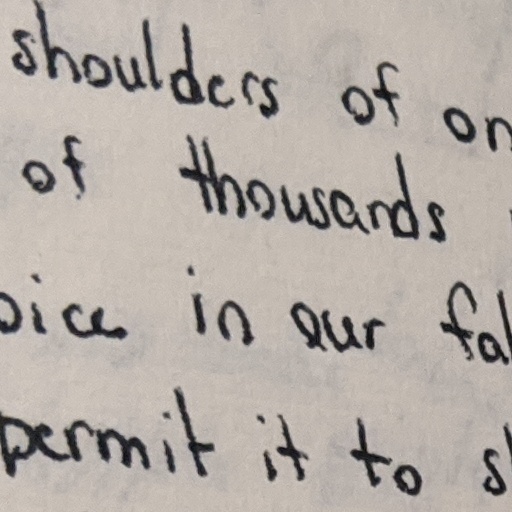 shoulders of on
of thousands
oice in our fal
permit it to s